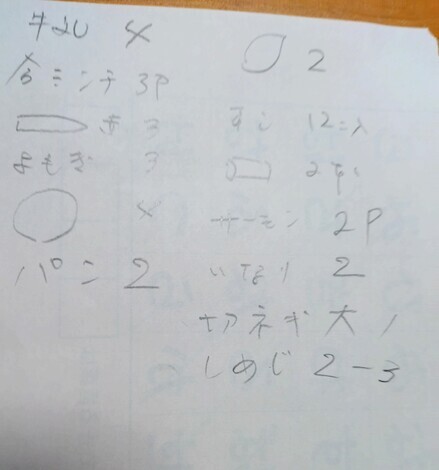 4
ミンチ 3P
3
よもぎ 3
パン 2
2
すし 12コ入
2
サーモン 2P
いなり 2
切ネギ 大 1
しめじ 2-3